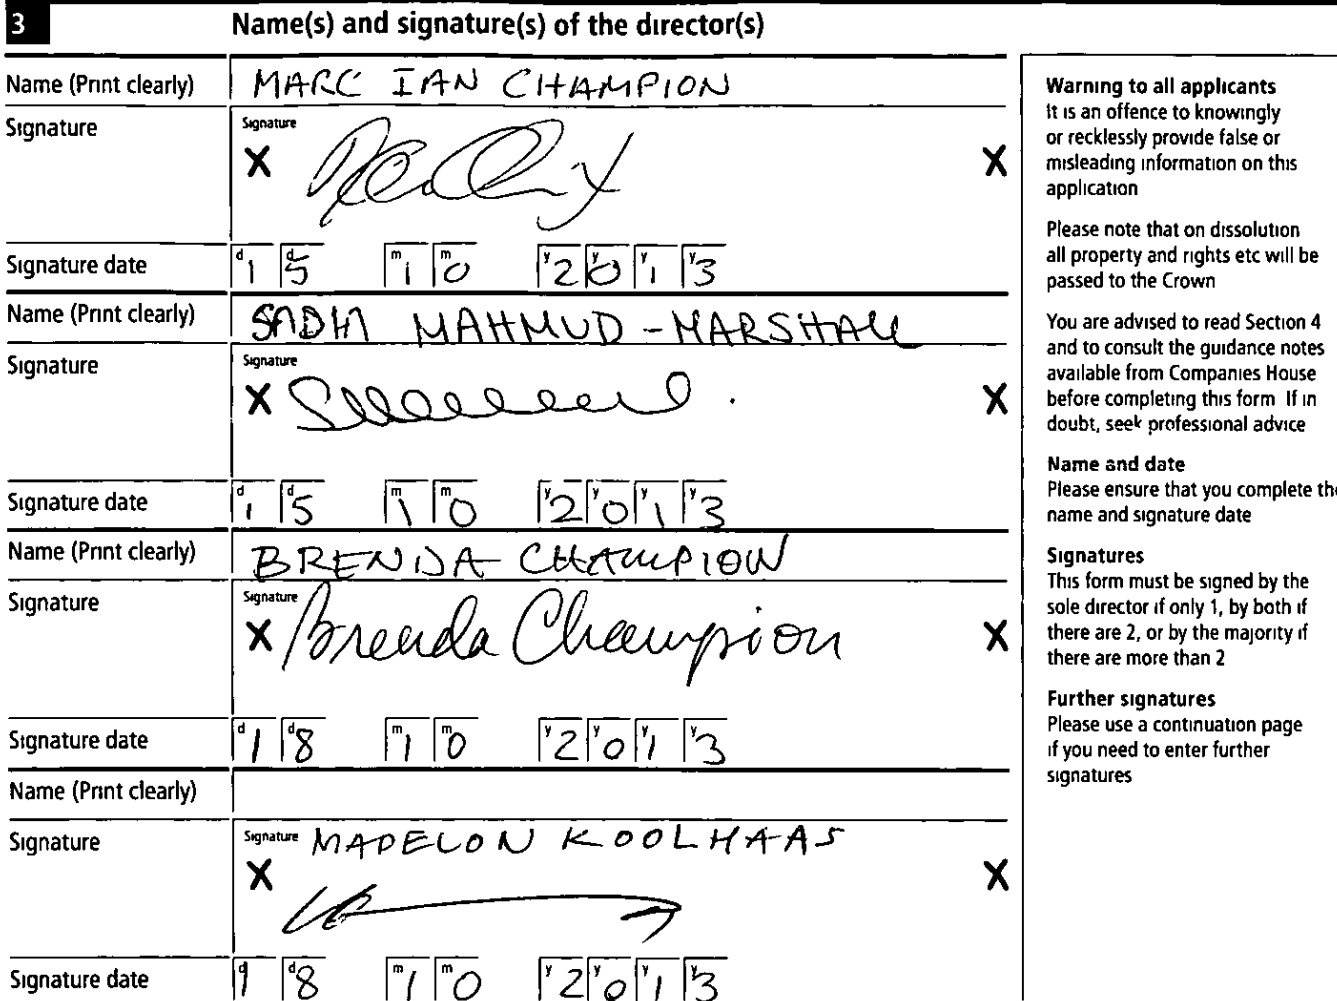 3 Name(s) and signature(s) of the director(s)
Name (Print clearly) MARC IAN CHAMPION
Signature Signature
X X
Signature date d 1 d 5 m 1 m 0 y 2 y 0 y 1 y 3
Name (Print clearly) SADIA MAHMUD-MARSHALL
Signature Signature
X X
Signature date d 1 d 5 m 1 m 0 y 2 y 0 y 1 y 3
Name (Print clearly) BRENDA CHAMPION
Signature Signature
X Brenda Champion X
Signature date d 1 d 8 m 1 m 0 y 2 y 0 y 1 y 3
Name (Print clearly)
Signature Signature MADELON KOOLHAAS
X X
Signature date d 1 d 8 m 1 m 0 y 2 y 0 y 1 y 3
Warning to all applicants
It is an offence to knowingly
or recklessly provide false or
misleading information on this
application
Please note that on dissolution
all property and rights etc will be
passed to the Crown
You are advised to read Section 4
and to consult the guidance notes
available from Companies House
before completing this form If in
doubt, seek professional advice
Name and date
Please ensure that you complete the
name and signature date
Signatures
This form must be signed by the
sole director if only 1, by both if
there are 2, or by the majority if
there are more than 2
Further signatures
Please use a continuation page
if you need to enter further
signatures